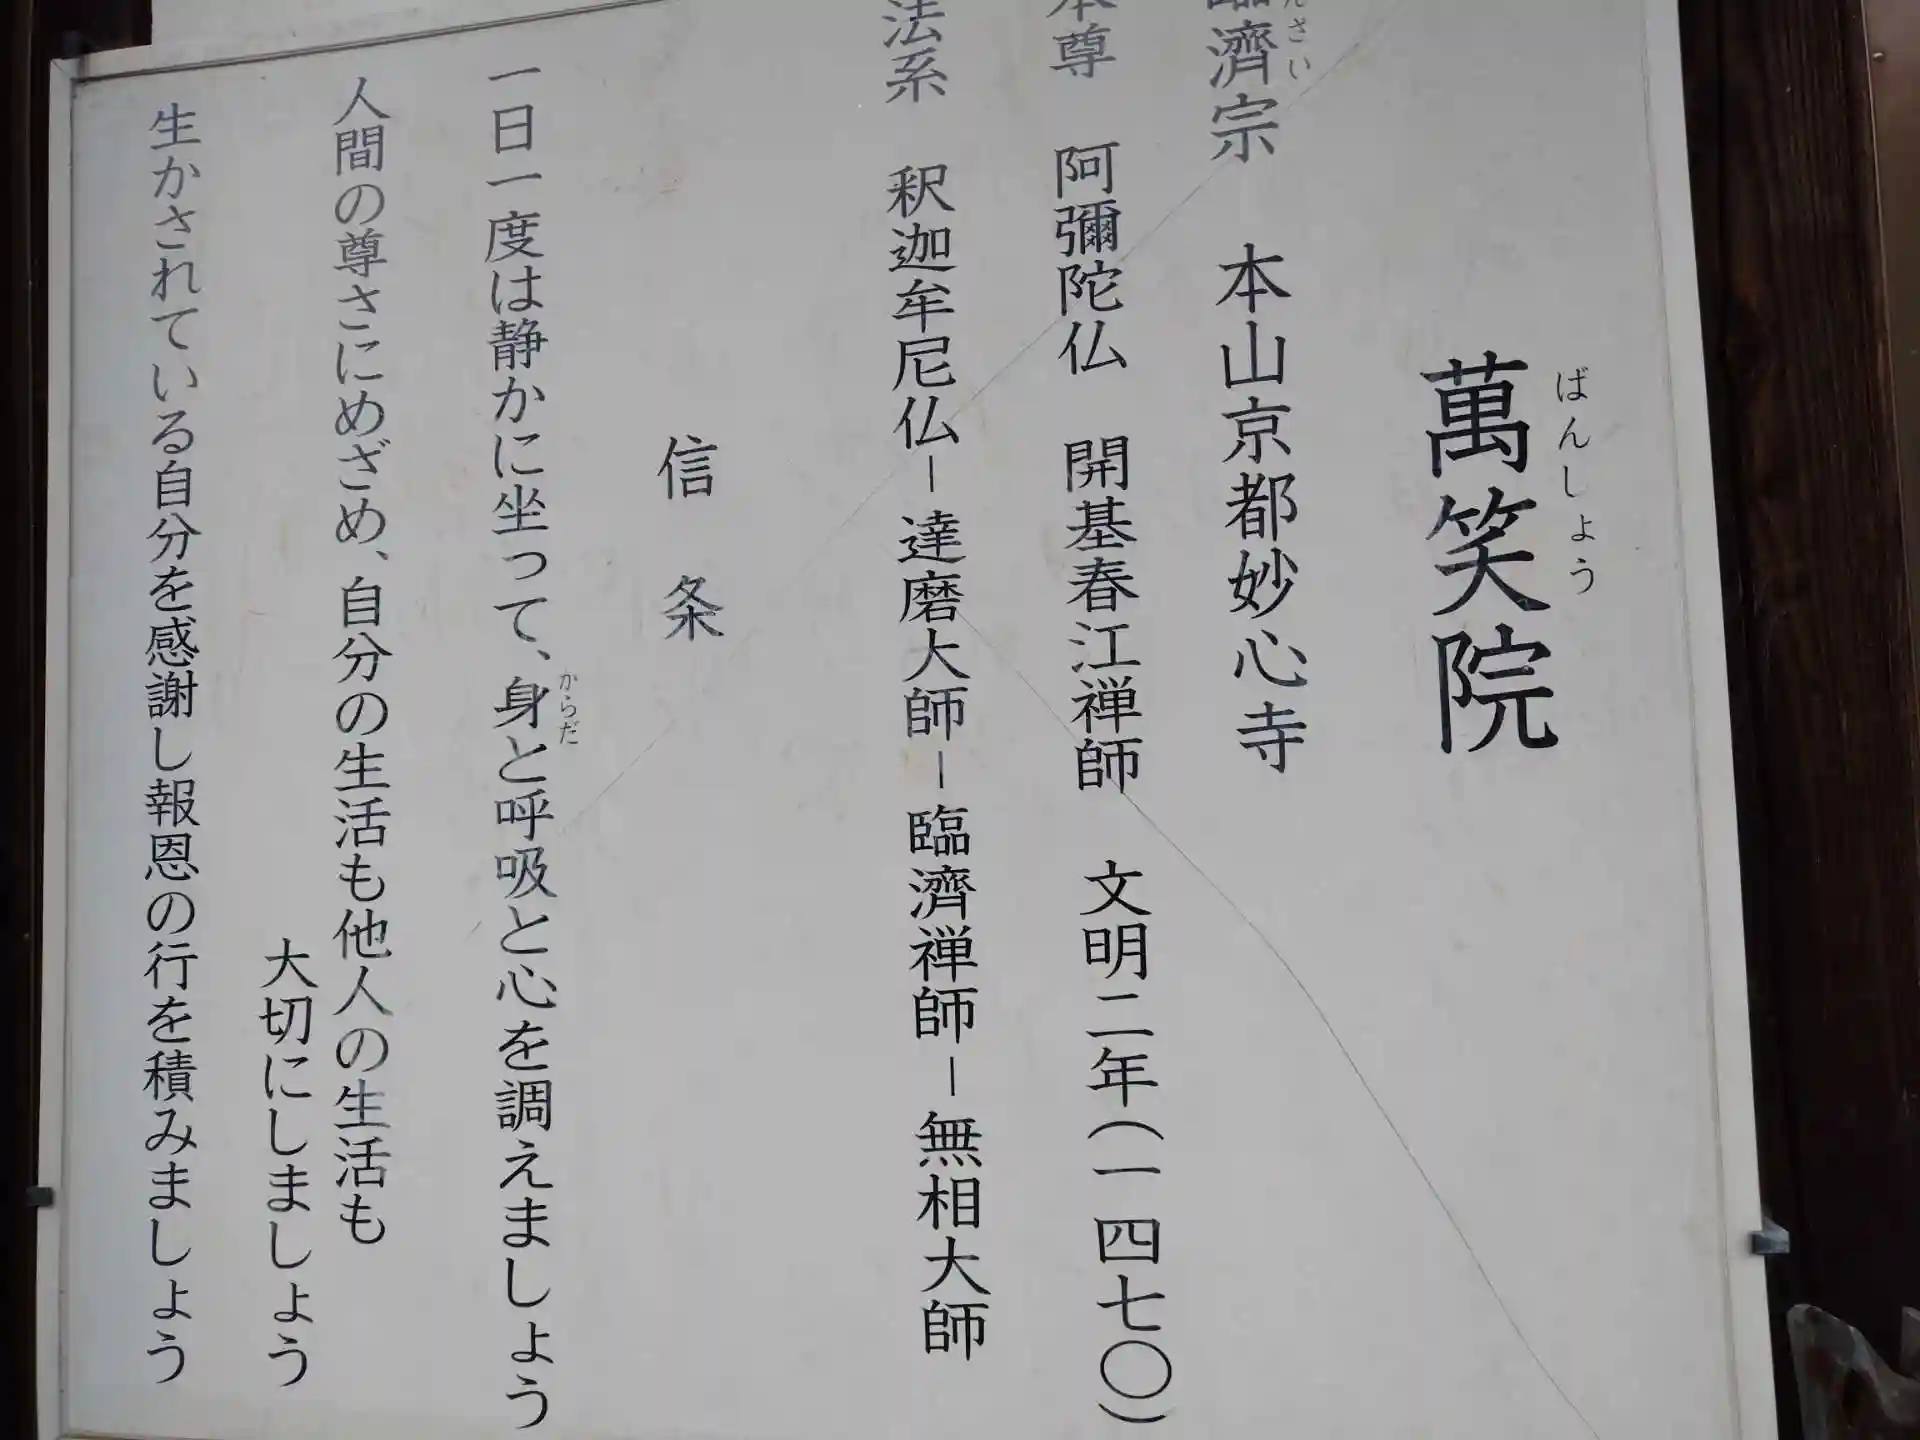 萬笑院
ばんしょう
臨濟宗　本山京都妙心寺
んさい
本尊　阿彌陀仏　開基春江禅師　文明二年(一四七〇)
法系　釈迦牟尼仏ー達磨大師ー臨濟禅師ー無相大師
信条
一日一度は静かに坐って、身と呼吸と心を調えましょう
からだ
人間の尊さにめざめ、自分の生活も他人の生活も
大切にしましょう
生かされている自分を感謝し報恩の行を積みましょう